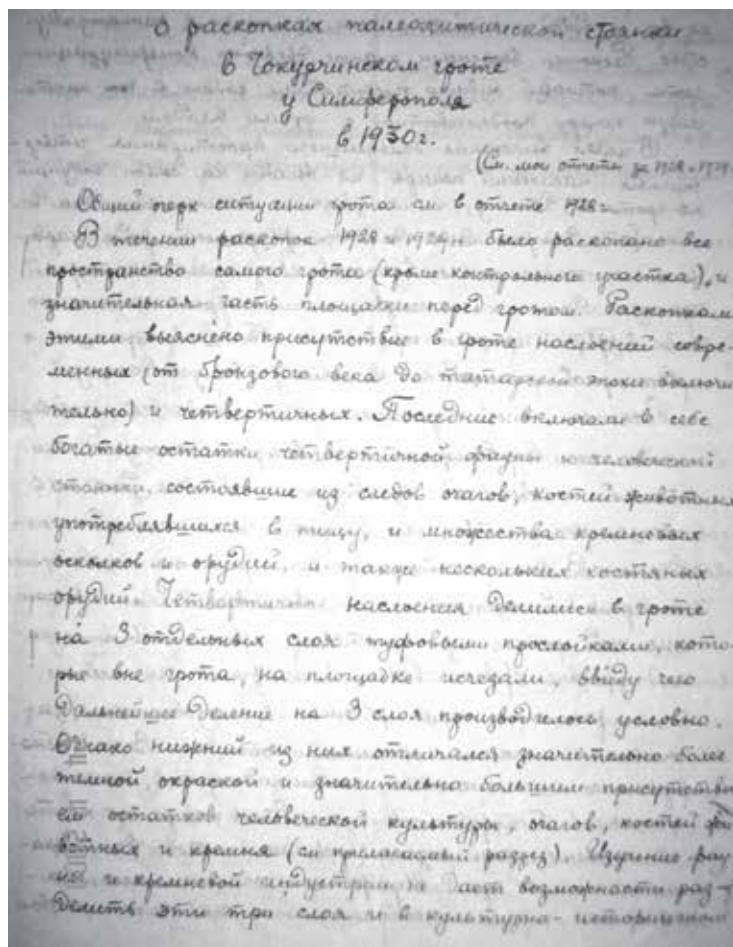 О раскопках палеолитической стоянки
в Чокурчинском гроте
у Симферополя
в 1930 г.
(См. мои отчеты за 1928 и 1929
Общий очерк ситуации грота см в отчете 1928 г
В течении раскопок 1928 и 1929 г было раскопано все
пространство самого грота (кроме контрольного участка), и
значительная часть площадки перед гротом. Раскопками
этими выяснено присутствие в гроте наслоений совре-
менных (от бронзового века до татарской эпохи включи
тельно) и четвертичных. Последние включали в себе
богатые остатки четвертичной фауны и человеческой
стоянки, состоявшие из следов очагов, костей животных
употреблявшихся в пищу, и множества кремневых
осколков и орудий, а также нескольких костяных
орудий. Четвертичные наслоения делились в гроте
на 3 отдельных слоя туфовыми прослойками, кото-
рые вне грота, на площадке исчезали, ввиду чего
дальнейшее деление на 3 слоя производилось условно.
Однако нижний из них отличался значительно более
темной окраской и значительно большим присутстви
ем остатков человеческой культуры, очагов, костей жи
вотных и кремня (см прилагаемый разрез). Изучение фау
ны и кремневой индустрии не дает возможности раз-
делить эти три слоя и в культурно-историческом